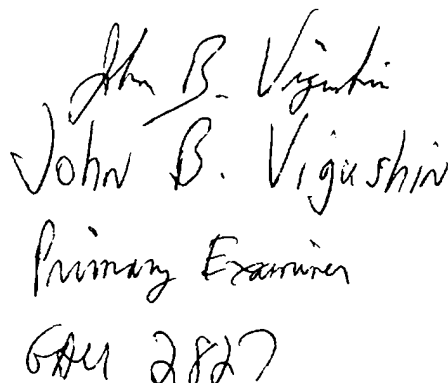 John B. Vigushin
John B. Vigushin
Primary Examiner
GAU 2827